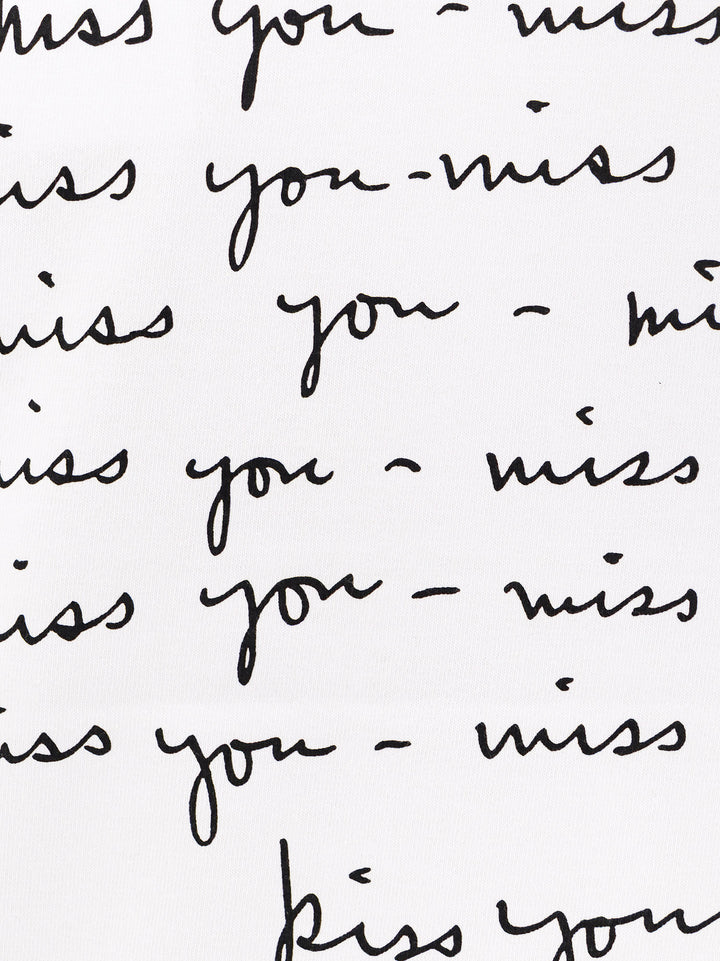 miss you - miss
miss you - miss
miss you - mi
miss you - miss
miss you - miss
miss you - miss
kiss you